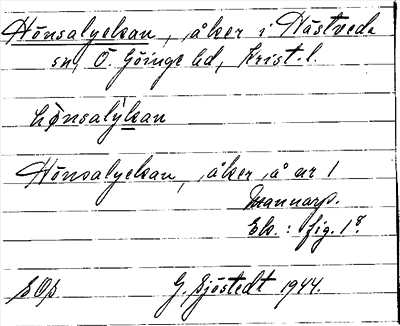 Hönsalyckan, åker i Hästveda
sn, Ö. Göinge hd, Krist. l.
hǫnsalykan
Hönsalyckan, åker å nr 1
Mannarp.
Ek.: fig. 18.
G. Sjöstedt 1944.